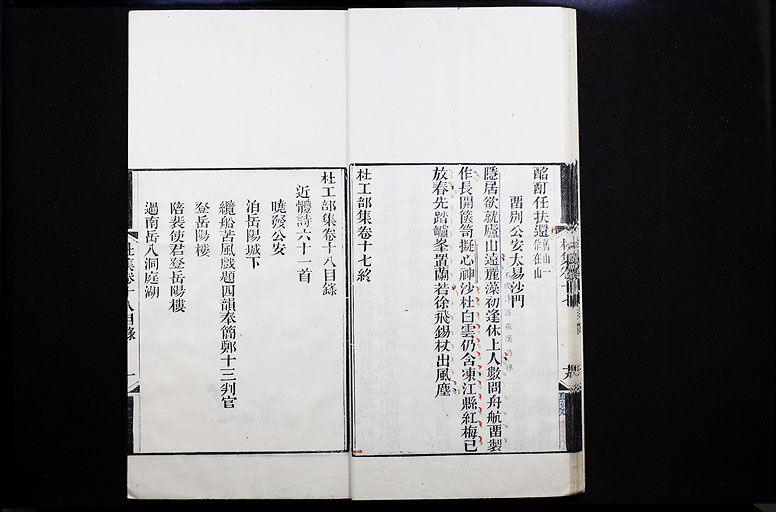 酩酊任扶還舊山一作在山
畱別公安太易沙門
隱居欲就廬山遠麗藻初逢休上人數問舟航畱製
作長開篋笥擬心神沙村白雲仍含凍江縣紅梅已
放春先踏罏峯置蘭若徐飛錫杖出風塵
杜工部集卷十七終
杜工部集卷十八目錄
近體詩六十一首
曉發公安
泊岳陽城下
纜船苦風戲題四韻奉簡鄭十三判官
登岳陽樓
陪裴使君登岳陽樓
過南岳入洞庭湖
杜集卷十八目錄
一